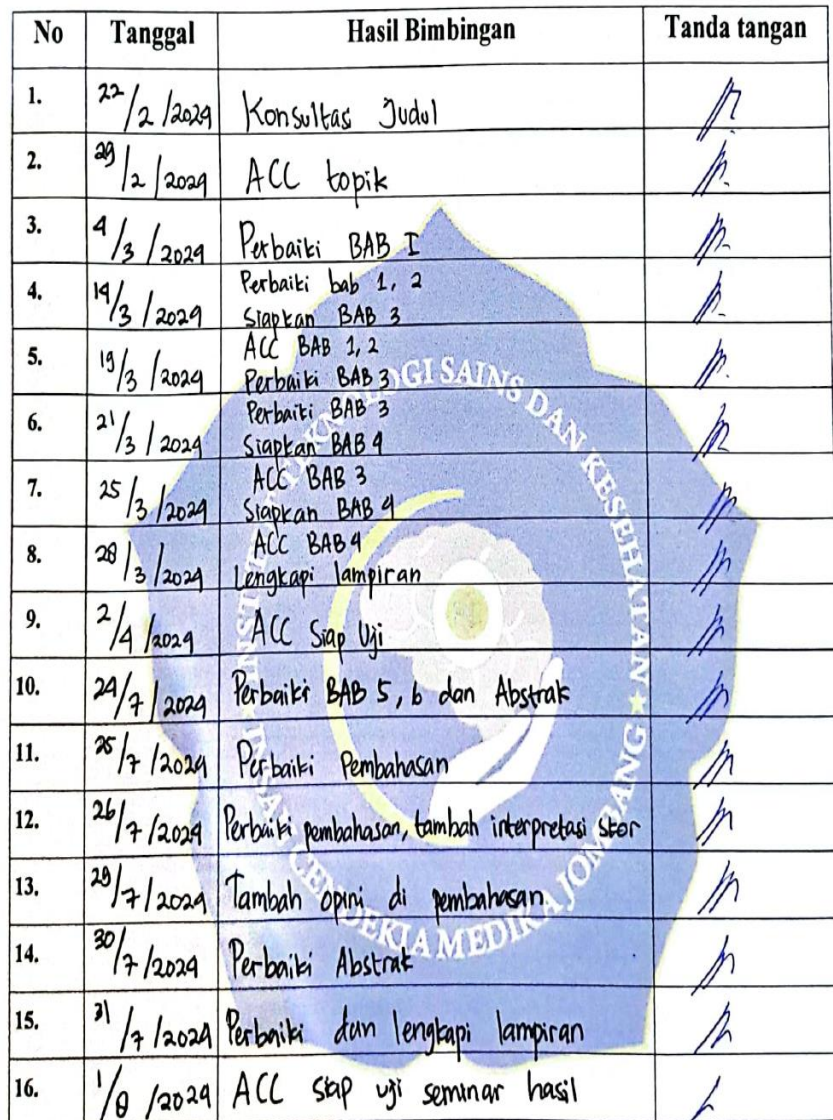 No Tanggal Hasil Bimbingan Tanda tangan
1. 22/2/2024 Konsultasi Judul
2. 29/2/2024 ACC topik
3. 4/3/2024 Perbaiki BAB I
4. 14/3/2024 Perbaiki bab 1, 2
Siapkan BAB 3
5. 19/3/2024 ACC BAB 1,2
Perbaiki BAB 3
6. 21/3/2024 Perbaiki BAB 3
Siapkan BAB 4
7. 25/3/2024 ACC BAB 3
Siapkan BAB 4
8. 28/3/2024 ACC BAB 4
Lengkapi lampiran
9. 2/4/2024 ACC Siap Uji
10. 24/7/2024 Perbaiki BAB 5, 6 dan Abstrak
11. 25/7/2024 Perbaiki Pembahasan
12. 26/7/2024 Perbaiki pembahasan, tambah interpretasi skor
13. 29/7/2024 Tambah opini di pembahasan
14. 30/7/2024 Perbaiki Abstrak
15. 31/7/2024 Perbaiki dan lengkapi lampiran
16. 1/8/2024 ACC siap uji seminar hasil
INSTITUT TEKNOLOGI SAINS DAN KESEHATAN
★ INSAN CENDEKIA MEDIKA JOMBANG ★